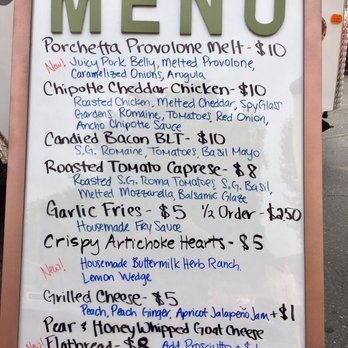 MENU
Porchetta Provolone Melt - $10
New! Juicy Pork Belly, Melted Provolone,
Caramelized Onions, Arugula
Chipotle Cheddar Chicken - $10
Roasted Chicken, Melted Cheddar, SpyGlass
Gardens Romaine, Tomatoes, Red Onion,
Ancho Chipotle Sauce
Candied Bacon BLT - $10
S.G. Romaine, Tomatoes, Basil Mayo
Roasted Tomato Caprese - $8
Roasted S.G. Roma Tomatoes, S.G. Basil,
Melted Mozzarella, Balsamic Glaze
Garlic Fries - $5 1/2 Order - $2.50
Housemade Fry Sauce
Crispy Artichoke Hearts - $5
New! Housemade Buttermilk Herb Ranch,
Lemon Wedge
Grilled Cheese - $5
Peach, Peach Ginger, Apricot Jalapeño Jam + $1
Pear & Honey Whipped Goat Cheese
New! Flatbread - $8 Add Prosciutto + $1